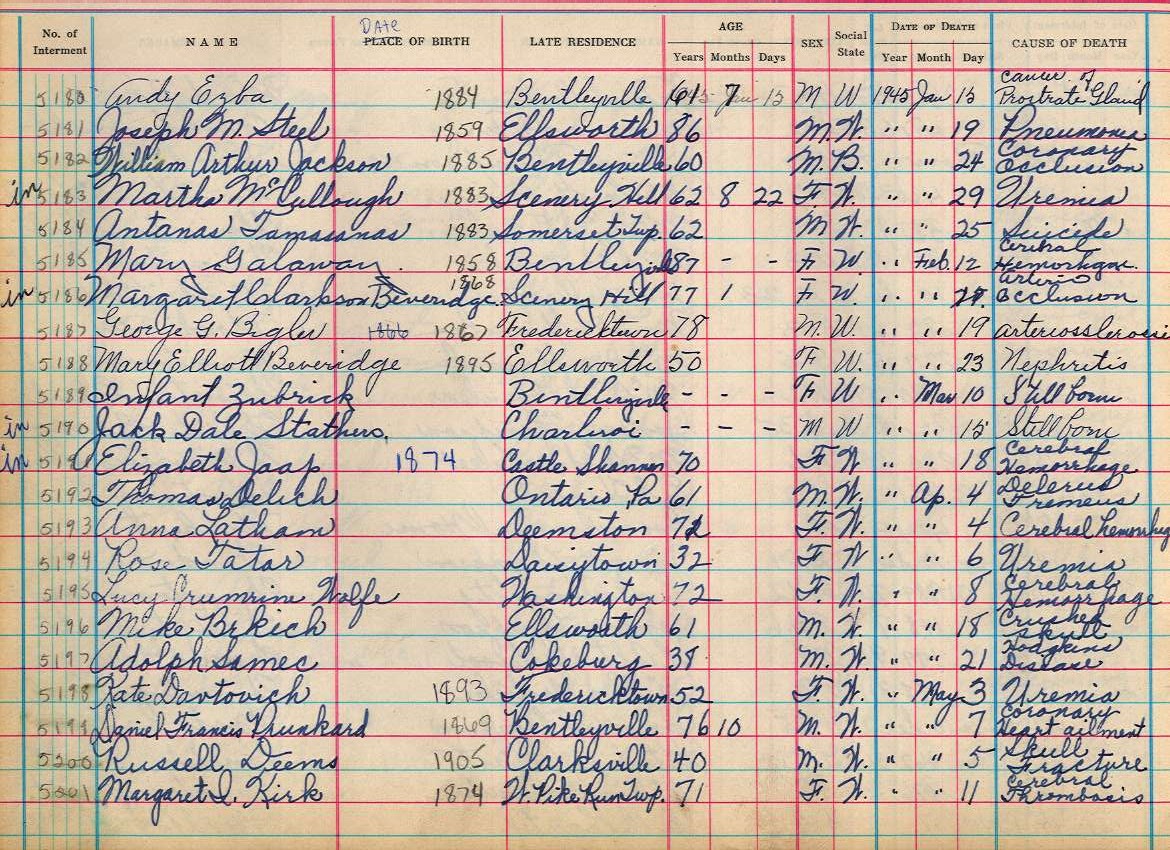 No. of Interment NAME DATE PLACE OF BIRTH LATE RESIDENCE AGE Years Months Days SEX Social State DATE OF DEATH Year Month Day CAUSE OF DEATH
5180 Andy Ezba 1884 Bentleyville 61 7 15 M W 1945 Jan 15 Cancer of Prostrate Gland
5181 Joseph M. Steel 1859 Ellsworth 86 M. W. " " 19 Pneumonia
5182 William Arthur Jackson 1885 Bentleyville 60 M. B. " " 24 Coronary Occlusion
in 5183 Martha McCullough 1883 Scenery Hill 62 8 22 F W. " " 29 Uremia
5184 Antanas Tamasanas 1883 Somerset Twp. 62 M W. " " 25 Suicide
5185 Mary Galaway. 1858 Bentleyville 87 - - F W " Feb. 12 Hemorhage.
in 5186 Margaret Clarkson Beveridge. 1868 Scenery Hill 77 1 F W. " " Occlusion
5187 George G. Bigler 1866 1867 Fredericktown 78 M. W. " " 19
5188 Mary Elliott Beveridge 1895 Ellsworth 50 F W. " " 23 Nephritis
5189 Infant Zubrick Bentleyville - - - F W " Mar 10 Still born
in 5190 Jack Dale Stathers. Charleroi - - - M W " " 15 Still born
in 5191 Elizabeth Jaap 1874 Castle Shannon 70 F W " " 18 Cerebral Hemorrhage
5192 Thomas Delich Ontario, Pa 61 M. W. " Ap. 4 Delerius Tremens
5193 Anna Latham Deemston F. W. " " 4 Cerebral hemorrhag
5194 Rose Tatar Daisytown 32 F W " " 6 Uremia
5195 Lucy Crumrine Wolfe Washington 72 F. W. " " 8 Cerebral Hemorrhage
5196 Mike Brkich Ellsworth 61 M. W. " " 18 Crushed skull
5197 Adolph Samec Cokeburg 38 M. W. " " 21 Hodgkins Disease
5198 Kate Davtovich 1893 Fredericktown 52 F. W. " May 3 Uremia
5199 Daniel Francis Drunkard 1869 Bentleyville 76 10 M. W. " " 7 Coronary Heart ailment
5200 Russell Deems 1905 Clarksville 40 M. W. " " 5 Skull Fracture
5201 Margaret I. Kirk 1874 W. Pike Run Twp. 71 F. W. " " 11 Cerebral Thrombosis